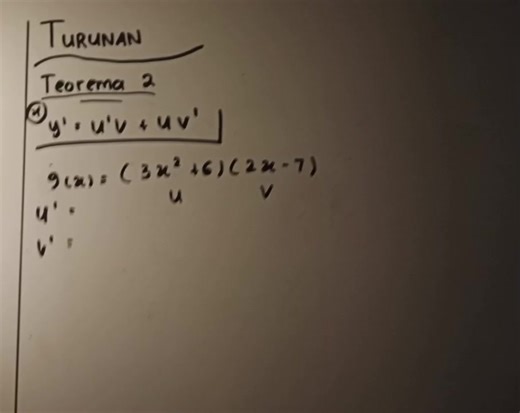 TURUNAN
Teorema 2
(4) y' = u'v + u v'
g(x) = (3x² + 6)(2x - 7)
u v
u' =
v' =